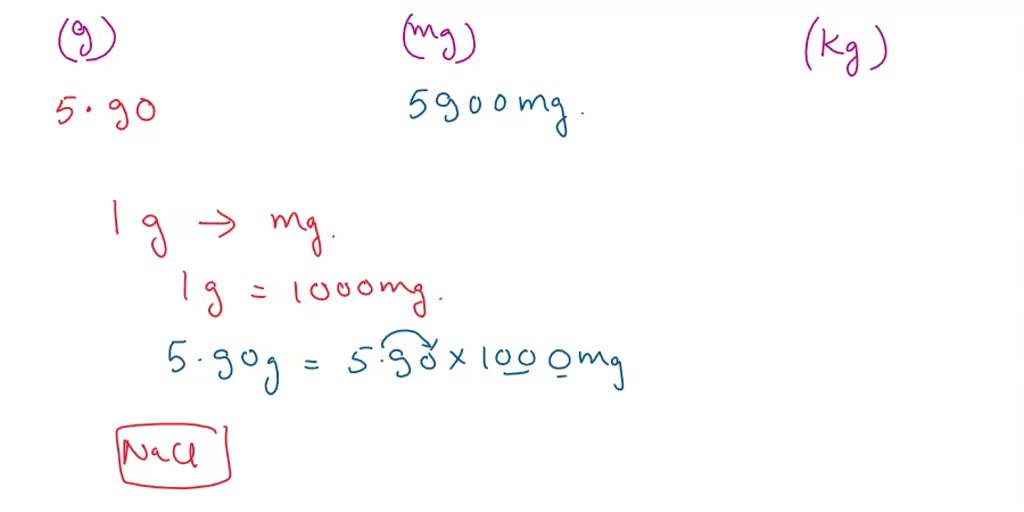 (g) (mg) (Kg)
5.90 5900mg.
1g → mg.
1g = 1000mg.
5.90g = 5.90 x 1000mg
NaCl